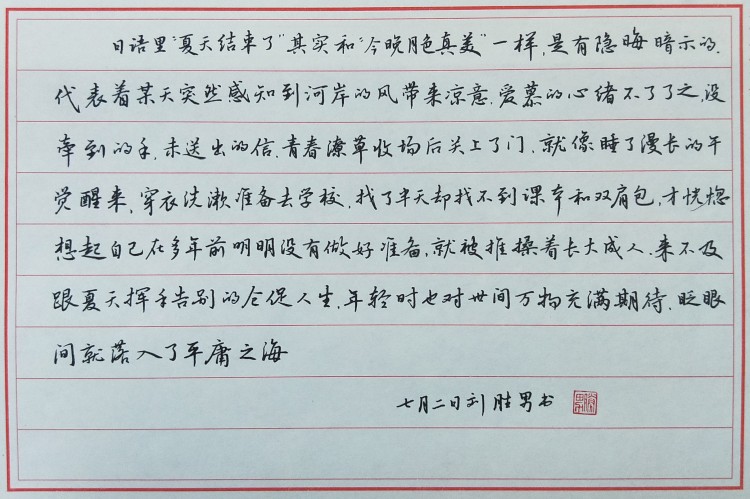 日语里“夏天结束了”其实和“今晚月色真美”一样，是有隐晦暗示的.
代表着某天突然感知到河岸的风带来凉意，爱慕的心绪不了了之，没
牵到的手，未送出的信，青春潦草收场后关上了门，就像睡了漫长的午
觉醒来，穿衣洗漱准备去学校，找了半天却找不到课本和双肩包，才恍惚
想起自己在多年前明明没有做好准备，就被推搡着长大成人，来不及
跟夏天挥手告别的仓促人生，年轻时也对世间万物充满期待，眨眼
间就落入了平庸之海
七月二日刘胜男书